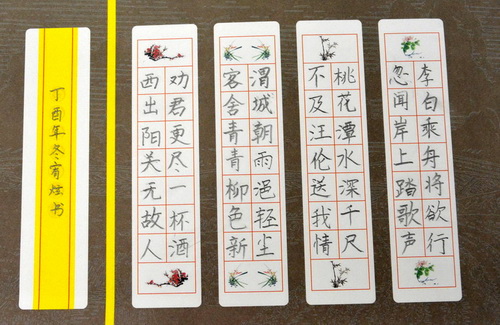 李白乘舟将欲行
忽闻岸上踏歌声
桃花潭水深千尺
不及汪伦送我情
渭城朝雨浥轻尘
客舍青青柳色新
劝君更尽一杯酒
西出阳关无故人
丁酉年冬书